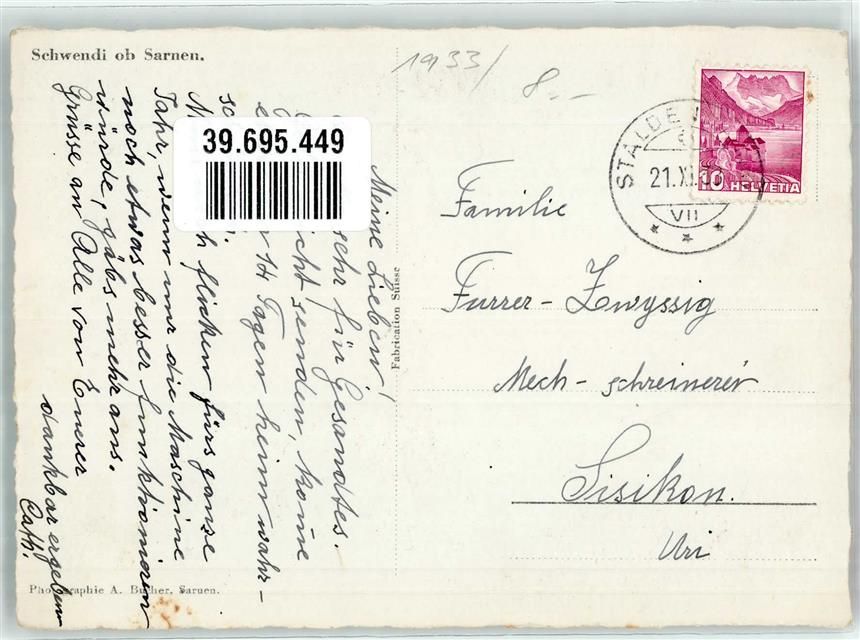 Schwendi ob Sarnen.
1933/
8.--
39.695.449
STALDE
21.XI.
VII
10 HELVETIA
Meine Lieben!
sehr für Gesandtes.
icht senden, komme
14 Tagen heim wahr-
flicken fürs ganse
Jahr, wenn nur die Maschine
noch etwas besser funktionieren
würde, gäbs mehr aus.
Grüsse an Alle von Euerer
dankbar ergeben
Cath.
Fabrication Suisse
Familie
Furrer-Zwyssig
Mech-schreinerei
Sisikon.
Uri
Photographie A. Bucher, Sarnen.